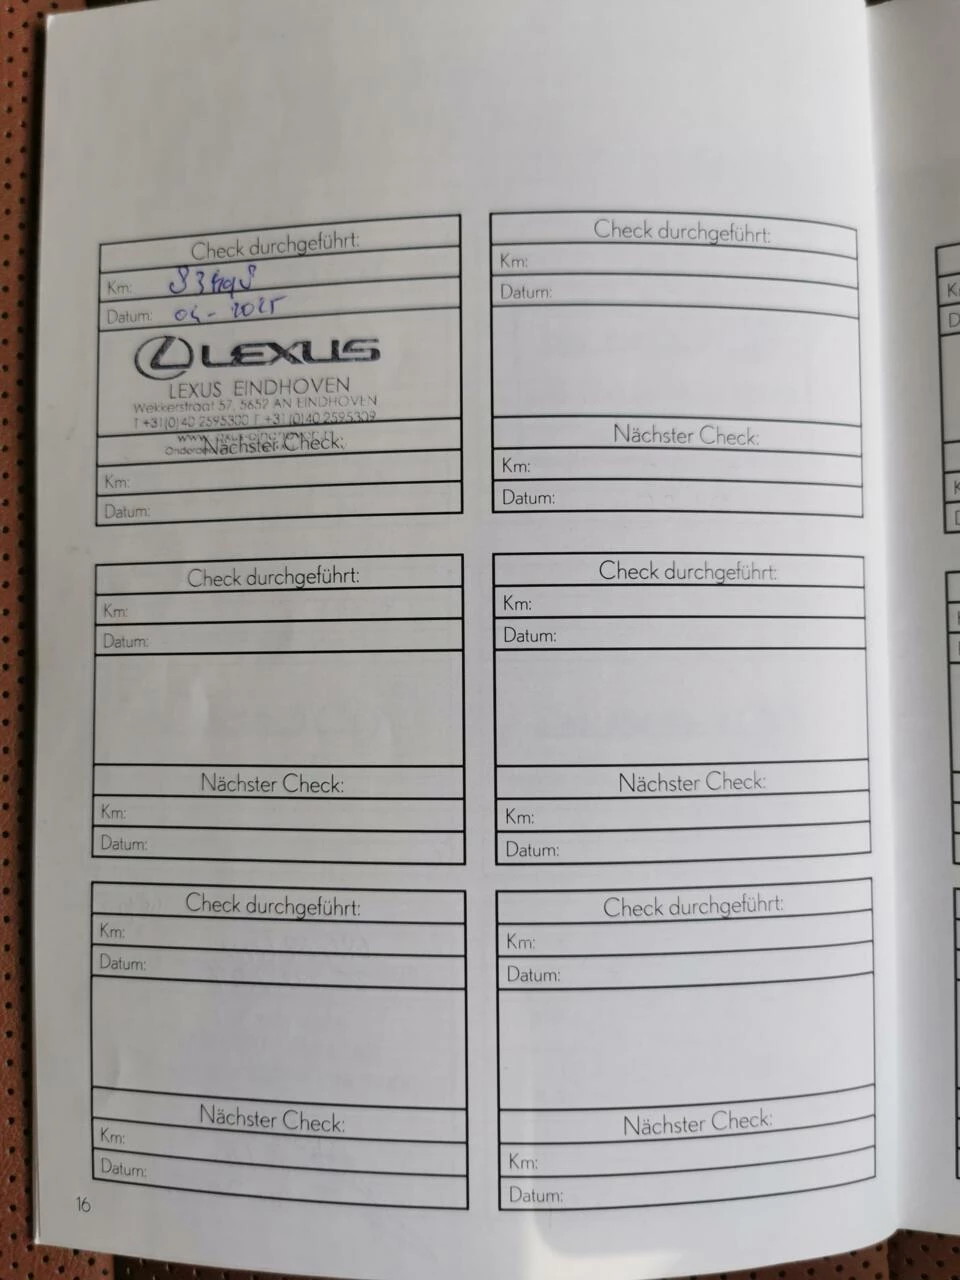 Check durchgeführt:
Km:
Datum: 04-2025
LEXUS
LEXUS EINDHOVEN
Wekkerstraat 57, 5652 AN EINDHOVEN
T +31(0)40 2595300 F +31(0)40 2595309
Nächster Check:
Km:
Datum:
Check durchgeführt:
Km:
Datum:
Nächster Check:
Km:
Datum:
Check durchgeführt:
Km:
Datum:
Nächster Check:
Km:
Datum:
Check durchgeführt:
Km:
Datum:
Nächster Check:
Km:
Datum:
Check durchgeführt:
Km:
Datum:
Nächster Check:
Km:
Datum:
Check durchgeführt:
Km:
Datum:
Nächster Check:
Km:
Datum:
16